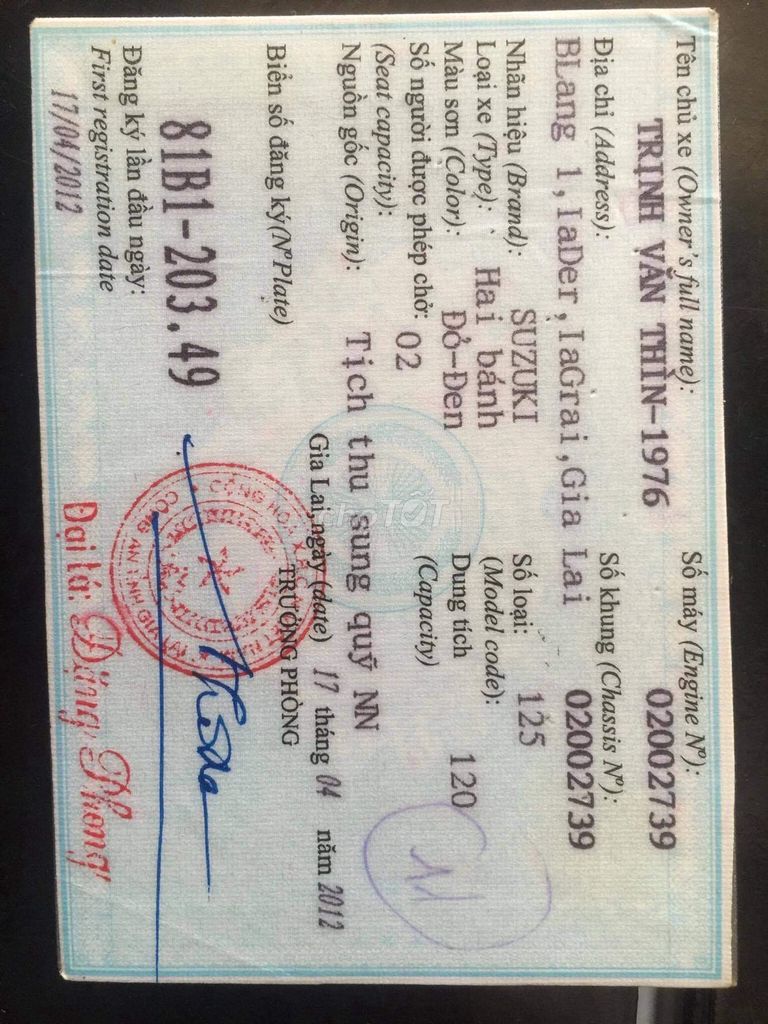 Tên chủ xe (Owner's full name): Số máy (Engine Nº):
TRỊNH VĂN THÌN-1976 02002739
Địa chỉ (Address): Số khung (Chassis Nº):
BLang 1,IaDer,IaGrai,Gia Lai 02002739
Nhãn hiệu (Brand): SUZUKI Số loại: 125
Loại xe (Type): Hai bánh (Model code):
Màu sơn (Color): Đỏ-Đen Dung tích 120
Số người được phép chở: 02 (Capacity)
(Seat capacity):
Nguồn gốc (Origin): Tịch thu sung quỹ NN
Gia Lai, ngày (date) 17 tháng 04 năm 2012
Biển số đăng ký(Nº Plate) TRƯỞNG PHÒNG
81B1-203.49
Đăng ký lần đầu ngày:
First registration date
17/04/2012
Đại tá: Đặng Phong
choTỐT